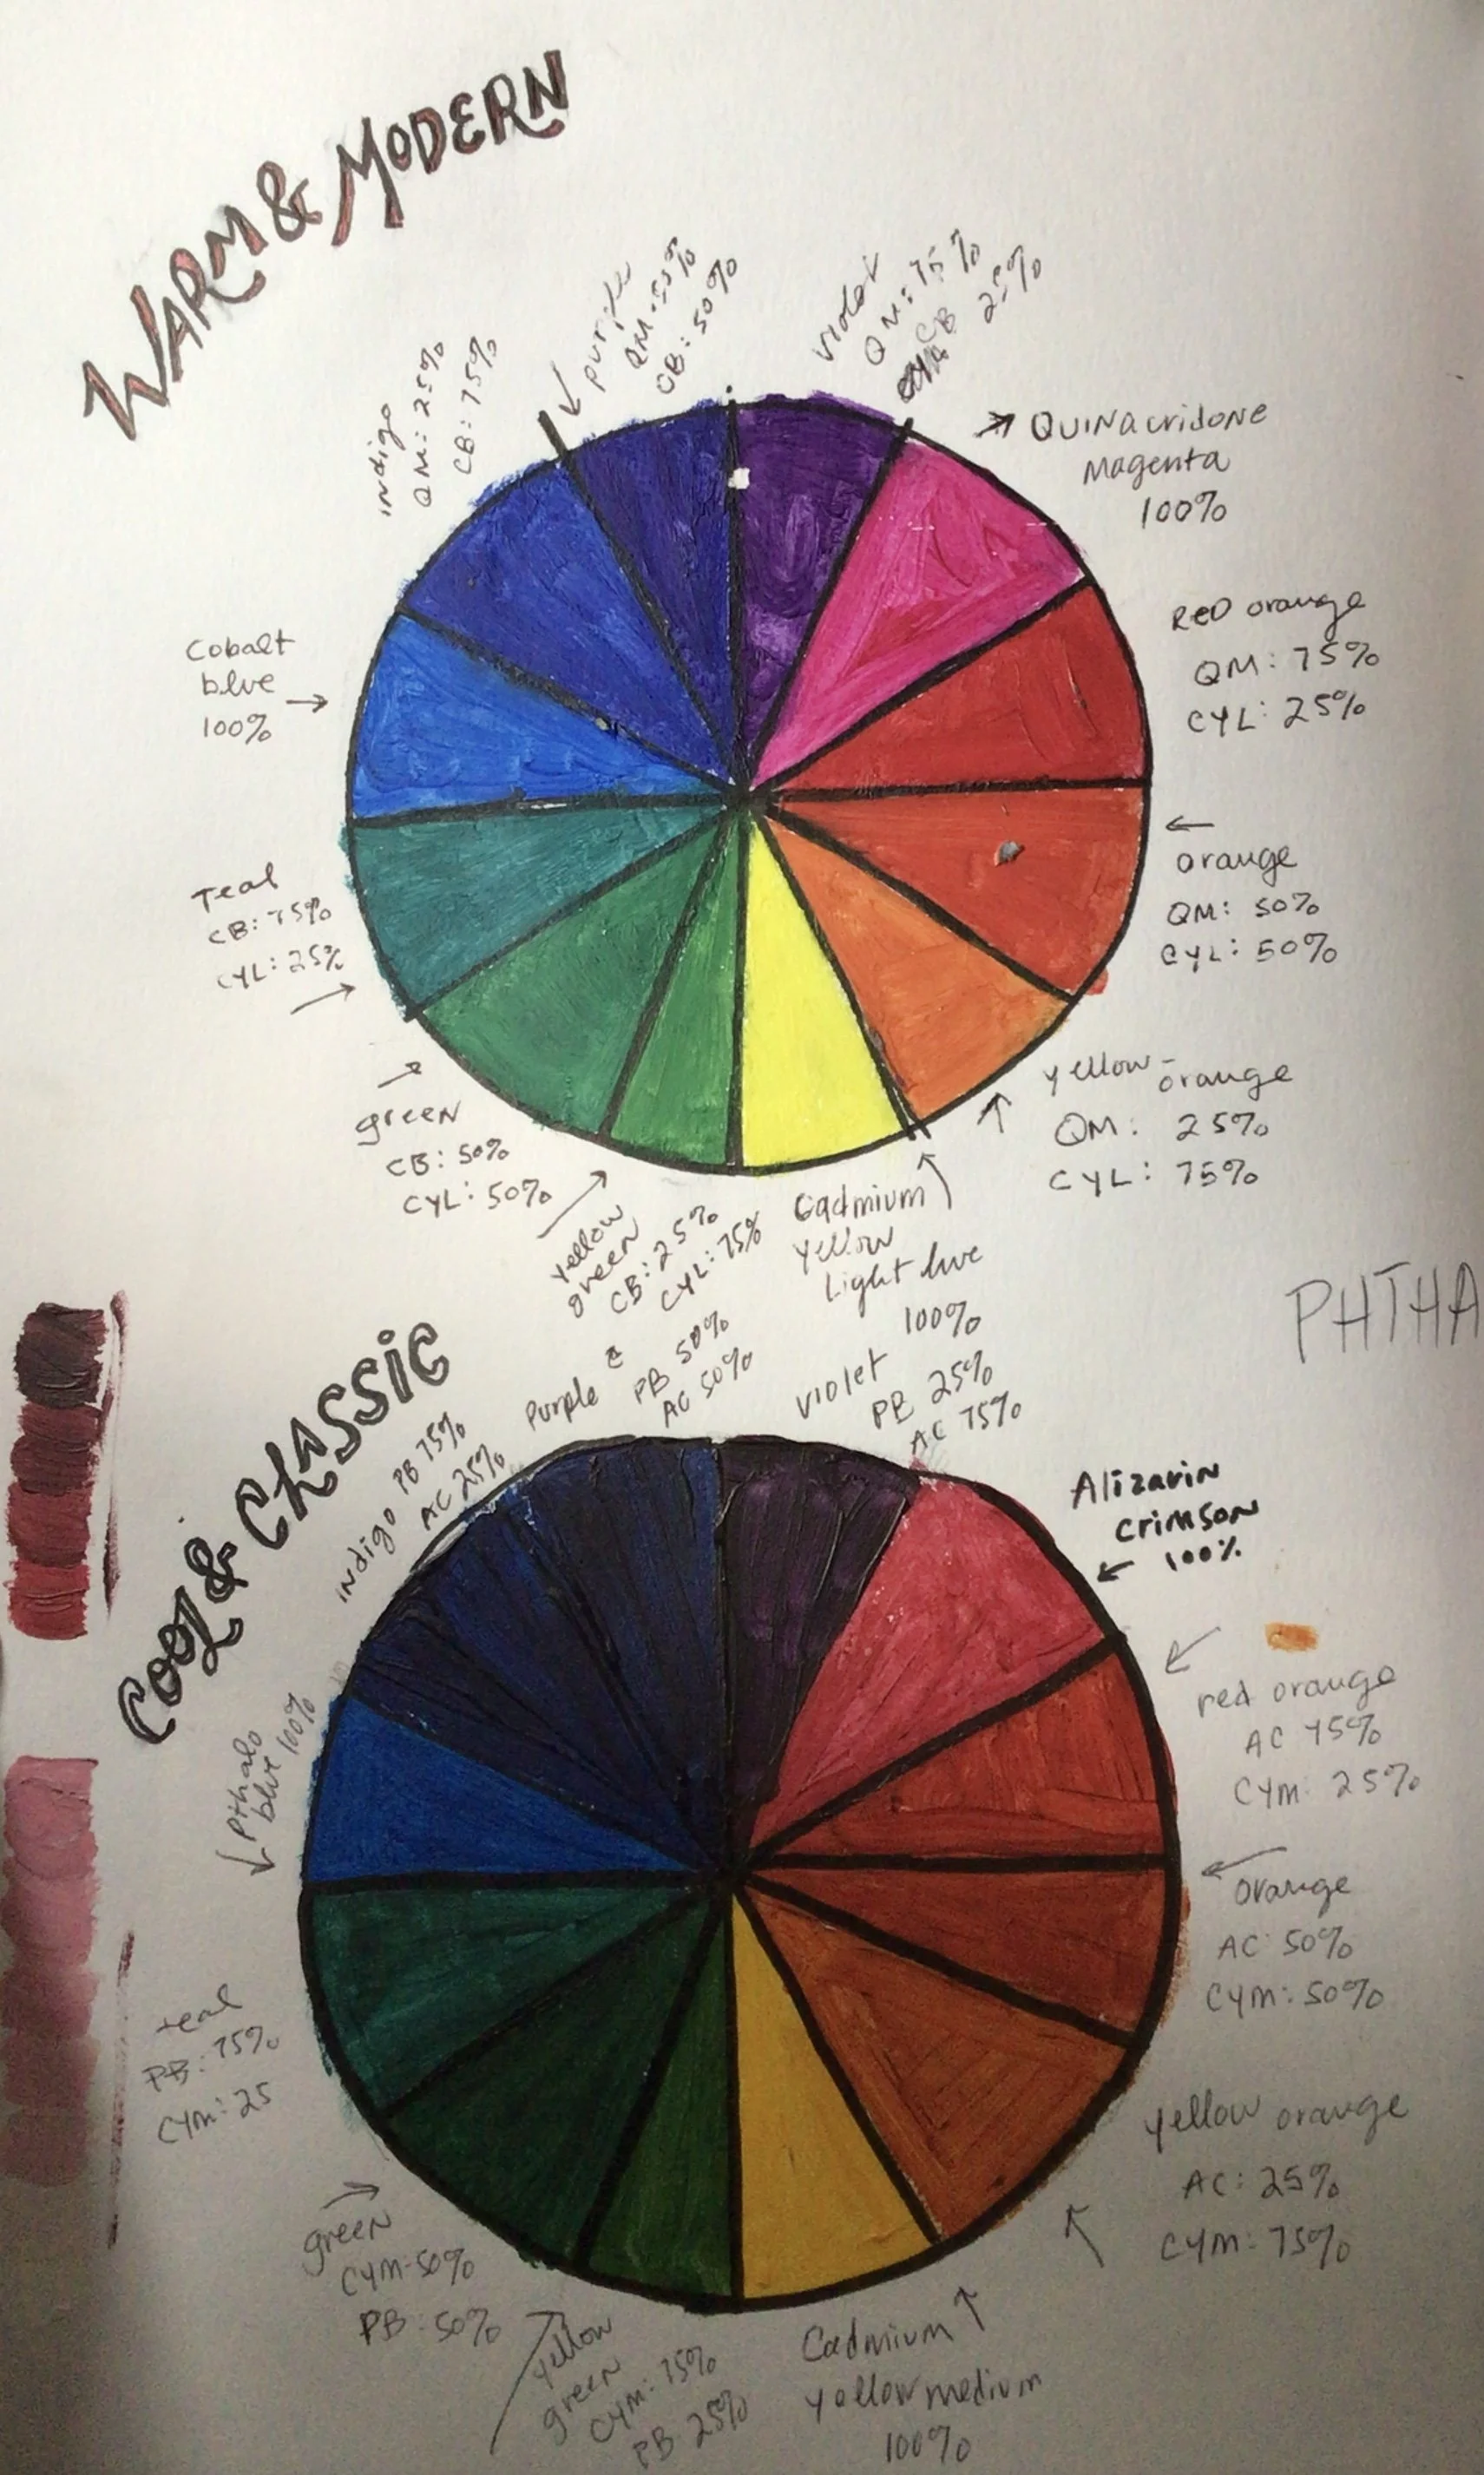 WARM & MODERN
indigo
QM: 25%
CB: 75%
purple
QM: 50%
CB: 50%
violet
QM: 75%
CB 25%
QUINacridone
Magenta
100%
Cobalt
blue
100%
ReD orange
QM: 75%
CYL: 25%
orange
QM: 50%
CYL: 50%
Teal
CB: 75%
CYL: 25%
yellow-
orange
QM: 25%
CYL: 75%
green
CB: 50%
CYL: 50%
yellow
green
CB: 25%
CYL: 75%
Cadmium
Yellow
Light hue
100%
PHTHA
COOL & CLASSIC
indigo PB 75%
AC 25%
Purple
PB 50%
AC 50%
violet
PB 25%
AC 75%
Alizarin
crimson
100%
Pthalo
blue 100%
red orange
AC 75%
CYM: 25%
orange
AC 50%
CYM: 50%
teal
PB: 75%
CYM: 25
yellow orange
AC: 25%
CYM: 75%
green
CYM-50%
PB: 50%
yellow
green
CYM: 75%
PB 25%
Cadmium
yellow medium
100%